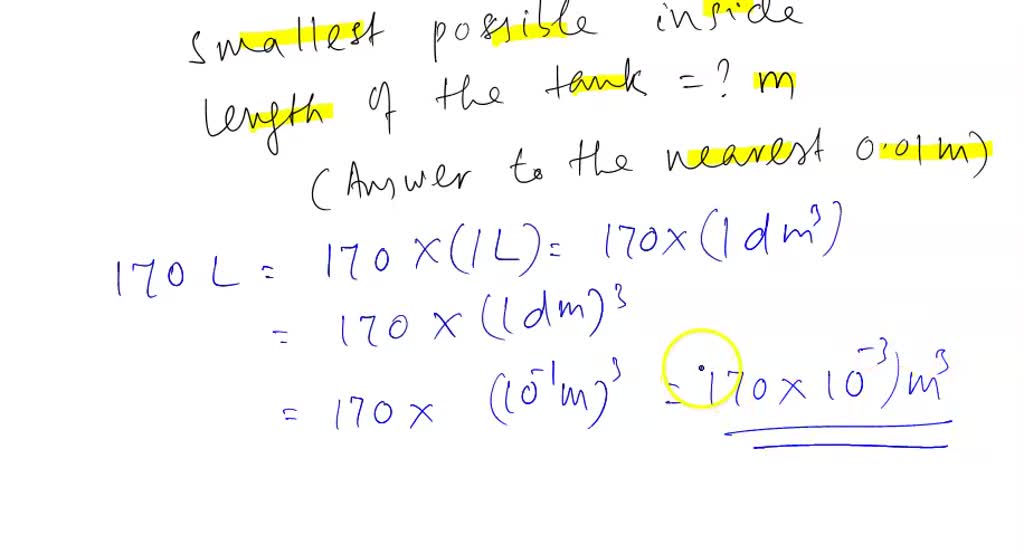 smallest possible inside
length of the tank = ? m
(Answer to the nearest 0.01m)
170 L = 170 × (1L) = 170 × (1dm³)
= 170 × (1dm)³
= 170 × (10⁻¹m)³ = 170 × 10⁻³) m³